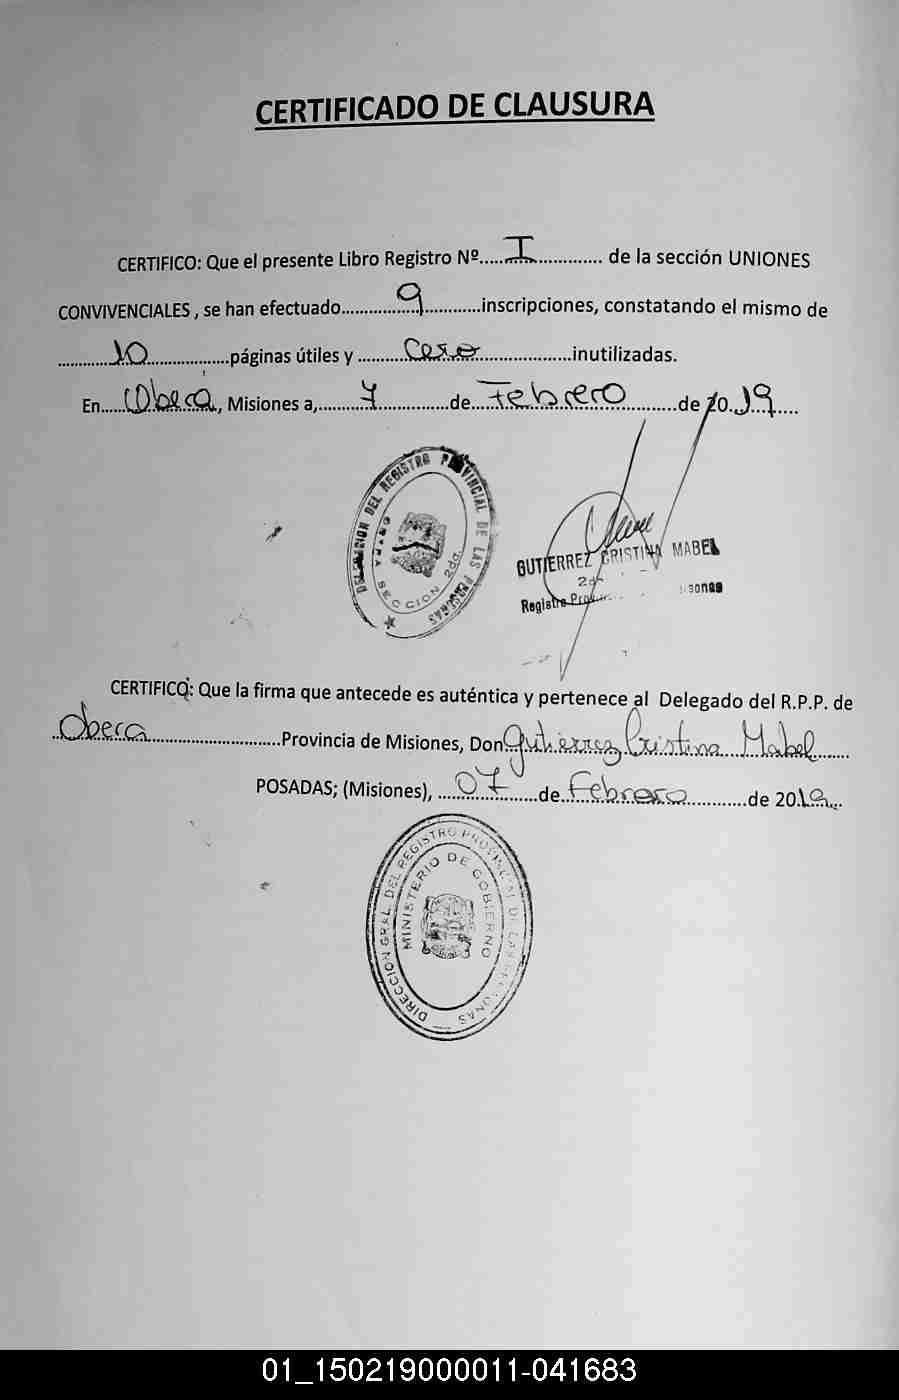 CERTIFICADO DE CLAUSURA
CERTIFICO: Que el presente Libro Registro Nº.....I............. de la sección UNIONES
CONVIVENCIALES , se han efectuado...............9............inscripciones, constatando el mismo de
............10..................páginas útiles y .........Cero....................inutilizadas.
En.....Oberá., Misiones a,.........7...............de....Febrero...........de 20.19....
DELEGACION DEL REGISTRO PROVINCIAL DE LAS PERSONAS
SECCION 2da
GUTIERREZ CRISTINA MABEL
Registro
CERTIFICO: Que la firma que antecede es auténtica y pertenece al Delegado del R.P.P. de
..Obera..........................Provincia de Misiones, Don Gutierrez Cristina Mabel......
POSADAS; (Misiones), ...07......de..Febrero...........de 2019...
DIRECCION GRAL. DEL REGISTRO PROVINCIAL DE LAS PERSONAS
MINISTERIO DE GOBIERNO
01_150219000011-041683